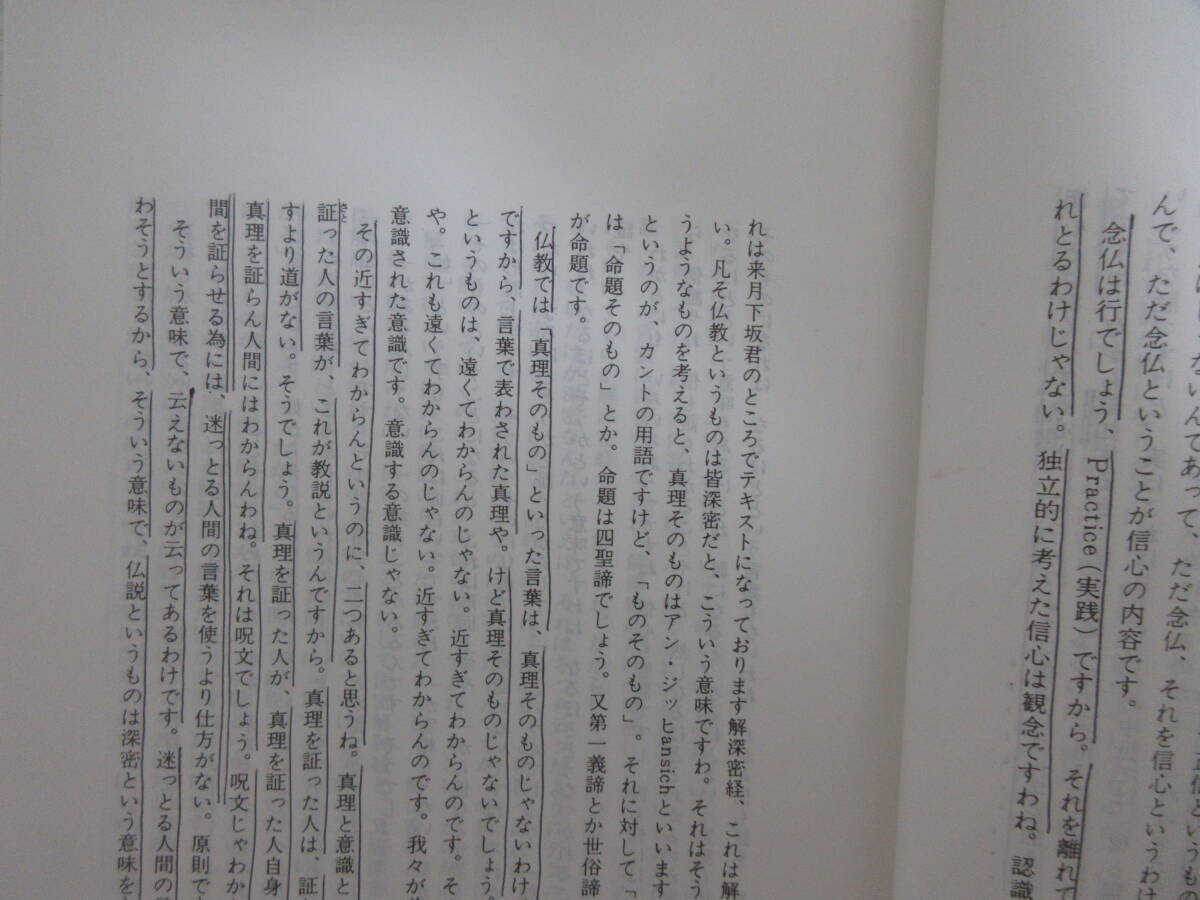 んで、ただ念仏ということが信心の内容です。
念仏は行でしょう、Practice(実践)ですから。それを離れて
れとるわけじゃない。独立的に考えた信心は観念ですわね。認識
れは来月下坂君のところでテキストになっております解深密経、これは解
い。凡そ仏教というものは皆深密だと、こういう意味ですわ。それはそう
うようなものを考えると、真理そのものはアン・ジッヒansichといいます
というのが、カントの用語ですけど、「ものそのもの」。それに対して「
は「命題そのもの」とか。命題は四聖諦でしょう。又第一義諦とか世俗諦
が命題です。
仏教では「真理そのもの」といった言葉は、真理そのものじゃないわけ
ですから、言葉で表わされた真理や。けど真理そのものじゃないでしょう。
というものは、遠くてわからんのじゃない。近すぎてわからんのです。そ
や。これも遠くてわからんのじゃない。近すぎてわからんのです。我々が
意識された意識です。意識する意識じゃない。
その近すぎてわからんというのに、二つあると思うね。真理と意識と
証った人の言葉が、これが教説というんですから。真理を証った人は、証
すより道がない。そうでしょう。真理を証った人が、真理を証った人自身
真理を証らん人間にはわからんわね。それは呪文でしょう。呪文じゃわか
間を証らせる為には、迷っとる人間の言葉を使うより仕方がない。原則で
そういう意味で、云えないものが云ってあるわけです。迷っとる人間の
わそうとするから、そういう意味で、仏説というものは深密という意味を